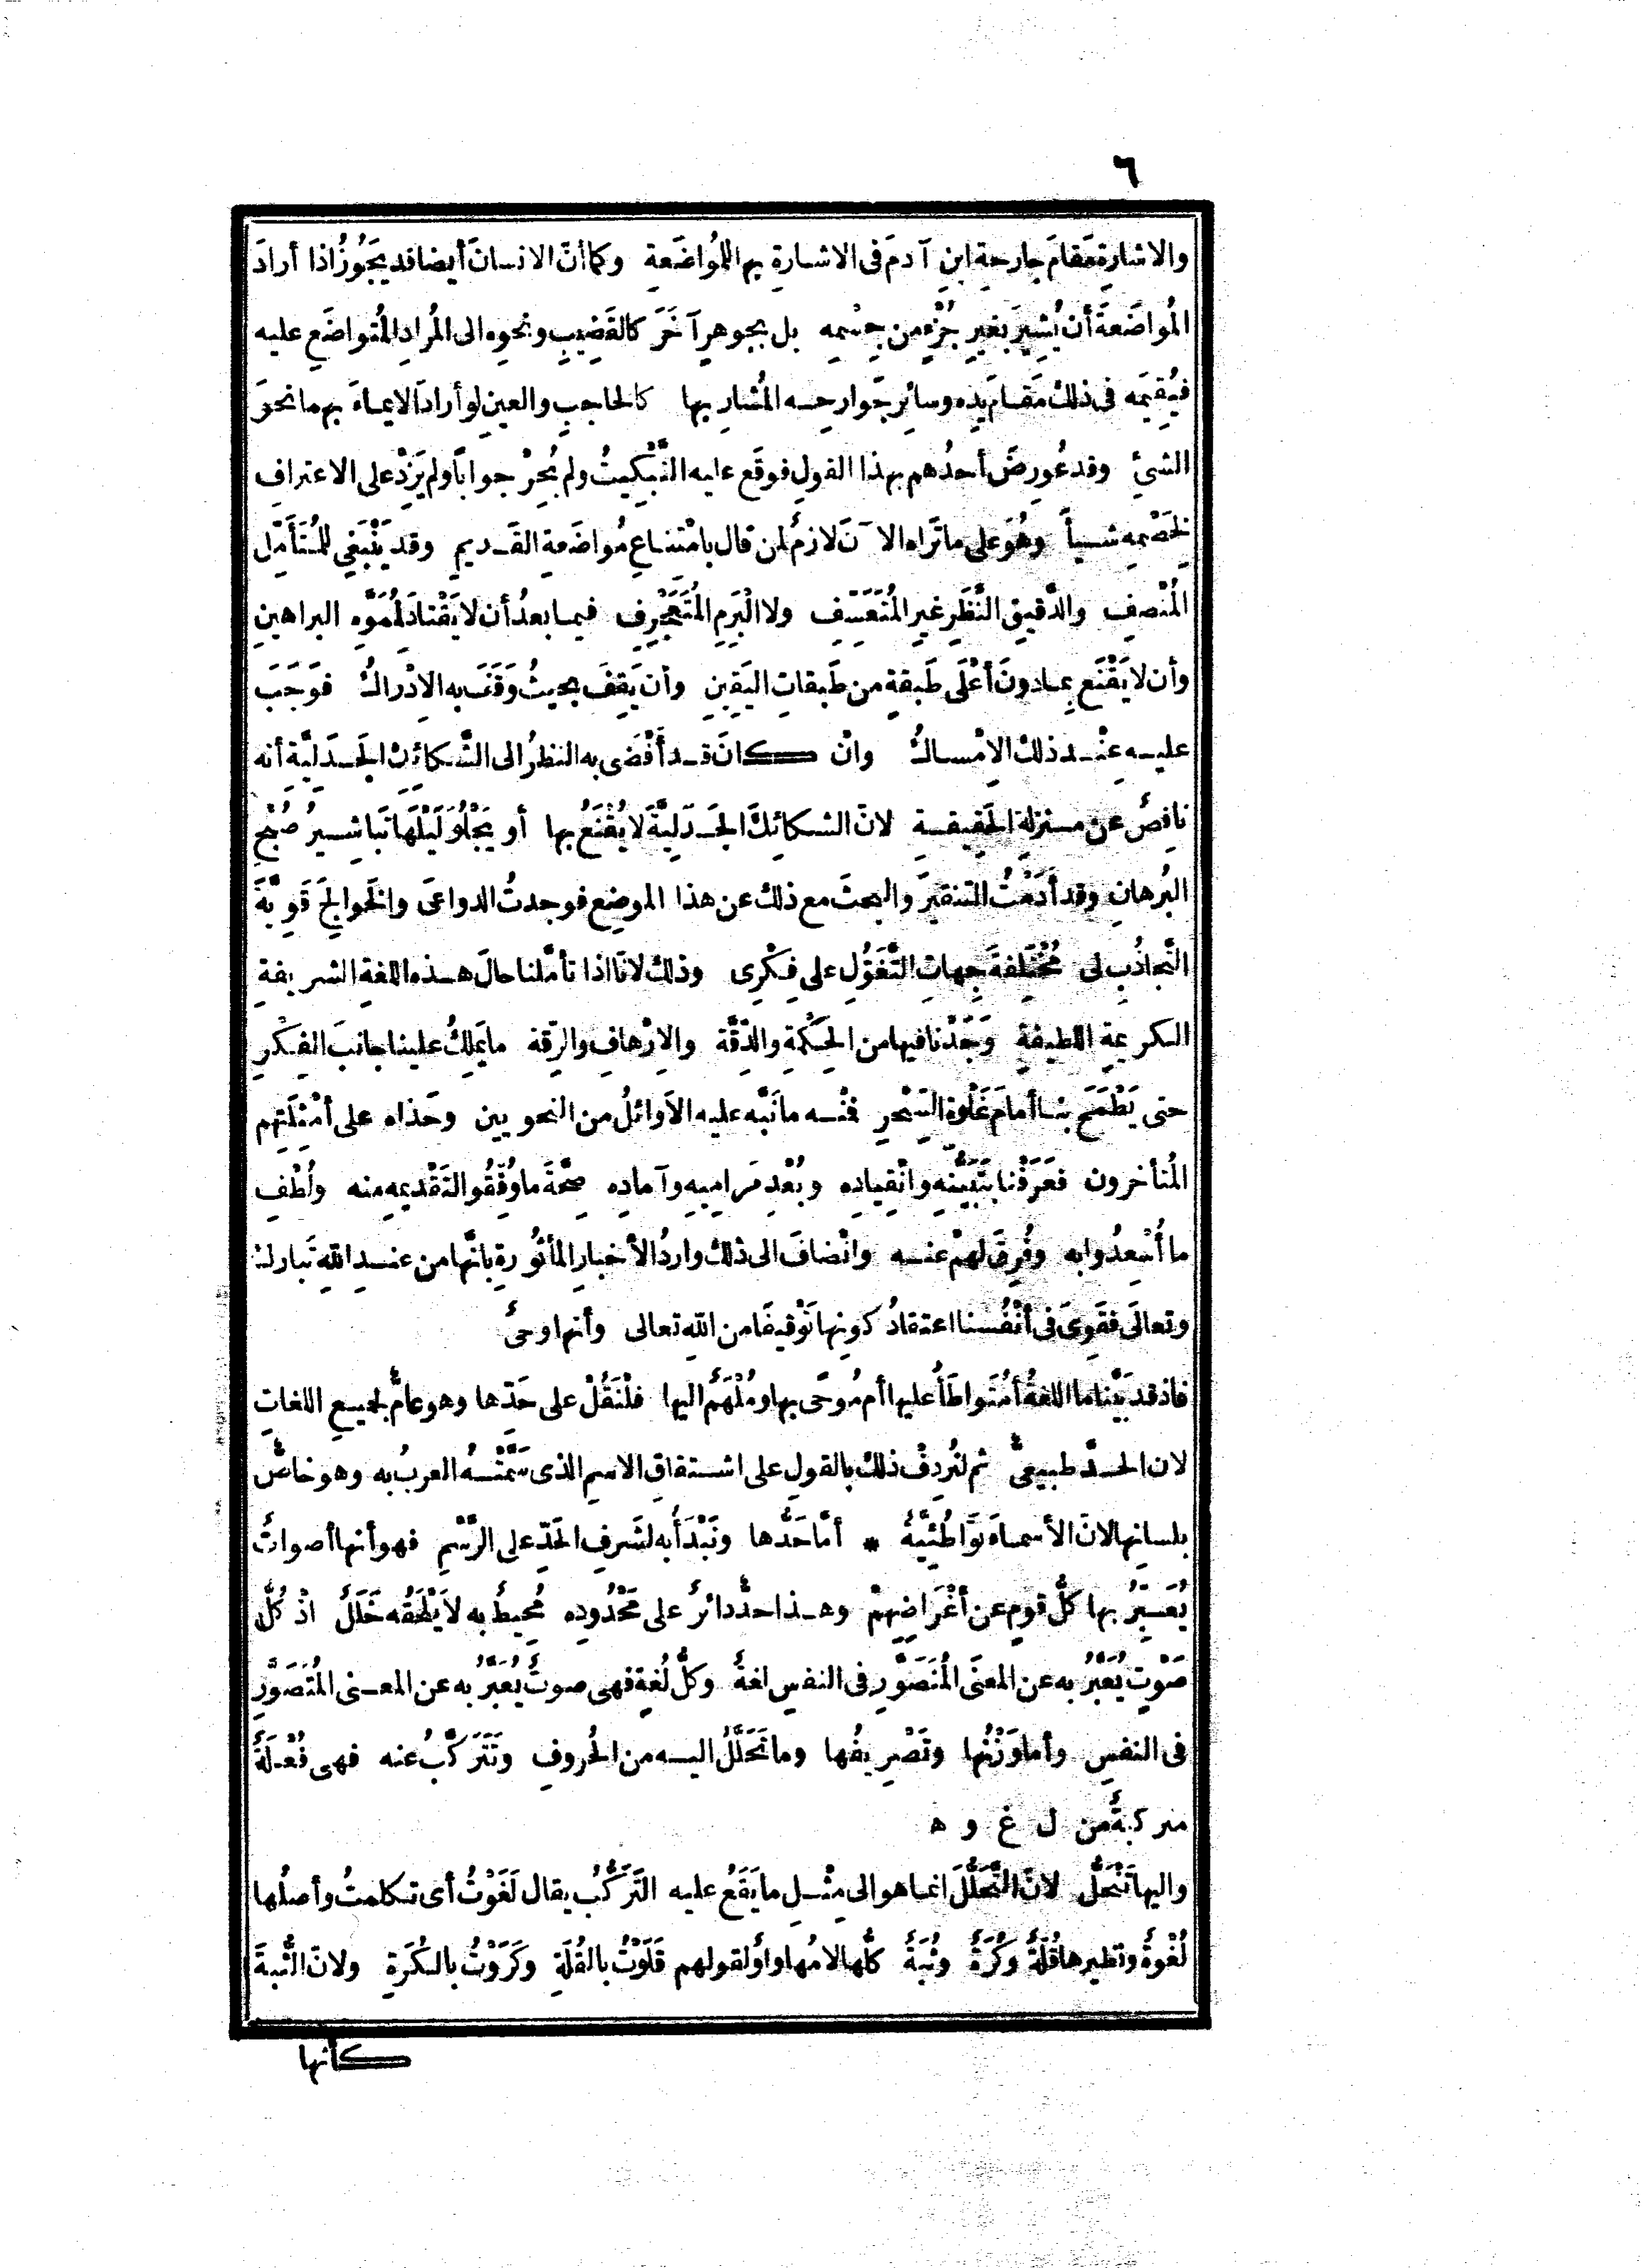 ٦
والاشارةِ مَقامَ جارحةِ ابنِ آدمَ فى الاشارةِ بها للمُواضَعةِ وكما أنّ الانسانَ أيضا قد يَجُوزُ اذا أرادَ
المُواضَعةَ أن يُشِيرَ بغيرِ جُزْءٍ من جِسْمِه بل بجوهرٍ آخَرَ كالقَضِيبِ ونحوِه الى المُرادِ المُتواضَعِ عليه
فيُقِيمَه فى ذلك مَقامَ يدِه وسائرِ جَوارحِه المُشارِ بها كالحاجبِ والعينِ لو أرادَ الايماءَ بهما نحوَ
الشىءِ وقد عُورِضَ أحدُهم بهذا القولِ فوقَع عليه التَّبْكِيتُ ولم يُحِرْ جواباً ولم يَزِدْ على الاعترافِ
لِخَصْمِه شيأ وهُوَ على ما تَراه الآنَ لازمٌ لمن قال بامْتناعِ مُواضَعةِ القَديمِ وقد يَنْبَغِى للمُتَأَمِّل
المُنْصفِ والدَّقيقِ النَّظَرِ غيرِ المُتَعَسِّفِ ولا البَرِمِ المُتَعَجْرِفِ فيما بعدُ أن لا يَقْتادَ لِمُمَوَّهِ البراهينِ
وأن لا يَقْنَع بما دونَ أعْلَى طَبقةٍ من طَبقاتِ اليَقِينِ وأن يَقِفَ بحيثُ وَقَفَ به الاِدْراكُ فوَجَبَ
عليه عِنْد ذلك الاِمْساكُ وانْ كانَ قد أَفْضَى به النظرُ الى الشَّكائِكِ الجَدَليَّةِ أنه
ناقِصٌ عن منزلةِ الحَقِيقةِ لانّ الشكائِكَ الجَدَليَّةَ لا يُقْنَعُ بها أو يَجْلُوَ لَيْلَها تَباشيرُ صُبْحِ
البُرهانِ وقد أَدَمْتُ التنقيرَ والبحثَ مع ذلك عن هذا الموضِعِ فوجدتُ الدواعىَ والخَوالِجَ قَوِيَّةَ
التَّجاذُبِ لى مُخْتَلِفةَ جِهاتِ التَّغَوُّلِ على فِكْرِى وذلك لانّا اذا تأمَّلنا حالَ هذه اللغةِ الشريفةِ
الكريمةِ اللطيفةِ وَجَدْنا فيها من الحِكْمةِ والدِّقَّة والاِرْهافِ والرِّقة ما يَملِكُ علينا جانبَ الفِكْرِ
حتى يَطْمَحَ بنا أمامَ غَلْوةِ السِّحْرِ فمْنه ما نَبَّه عليه الاَوائلُ من النحويين وحَذاه على أمْثِلَتِهم
المُتأخرون فعَرَفْنا بتَبَيُّنِه وانْقِيادِه وبُعْدِ مَرامِيهِ وآمادِهِ صِحَّةَ ما وُفِّقُوا لتَقْديمِهِ منه ولُطْفِ
ما أُسْعِدُوا به وفُرِقَ لهمْ عنه وانْضافَ الى ذلك واردُ الأخبارِ المأثُورةِ بانَّها من عندِ اللهِ تَبارك
وتعالَى فقَوِىَ فى أنْفُسِنا اعتقادُ كونِها تَوْقيفًا من اللهِ تعالى وأنها وحىٌ
فاذ قد بَيَّنا ما اللغةُ أمُتَواطَأٌ عليها أم مُوحًى بها ومُلْهَمٌ اليها فلْنَقُلْ على حَدِّها وهو عامٌّ لجميعِ اللغاتِ
لان الحدَّ طبيعىٌّ ثم لنُردِفْ ذلك بالقولِ على اشتقاقِ الاسمِ الذى سَمَّتْهُ العربُ به وهو خاصٌّ
بلسانِها لانّ الأسماءَ تَواطُئِيَّةٌ * أمّا حَدُّها ونَبْدَأُ به لشَرفِ الحَدِّ على الرَّسْمِ فهو أنها أصواتٌ
يُعبِّرُ بها كلُّ قومٍ عن أغْرَاضِهِمْ وهذا حدٌّ دائرٌ على مَحْدُودِه مُحِيطٌ به لا يَلْحَقُه خَلَلٌ اذْ كُلُّ
صَوْتٍ يُعَبَّرُ به عن المعنَى المُتَصَوَّرِ فى النفسِ لغةٌ وكلُّ لُغةٍ فهى صوتٌ يُعَبَّرُ به عن المعنى المُتَصَوَّرِ
فى النفسِ وأما وَزْنُها وتَصْرِيفُها وما تَحَلَّلُ اليه من الحُروفِ وتَتَركَّبُ عنه فهى فُعْلَةٌ
مركبةٌ من ل غ و ه
واليها تَنْحَلُّ لانّ التَّحَلُّلَ انما هو الى مِثْلِ ما يَقَعُ عليه التَّرَكُّبُ يقال لَغَوْتُ أى تكلمتُ وأصلُها
لُغْوةٌ ونظيرها قُلَةٌ وكُرَةٌ وثُبَةٌ كلُّها لامُها واوٌ لقولهم قَلَوْتُ بالقُلَةِ وكَرَوْتُ بالكُرَةِ ولانّ الثُّبةَ
كأنها